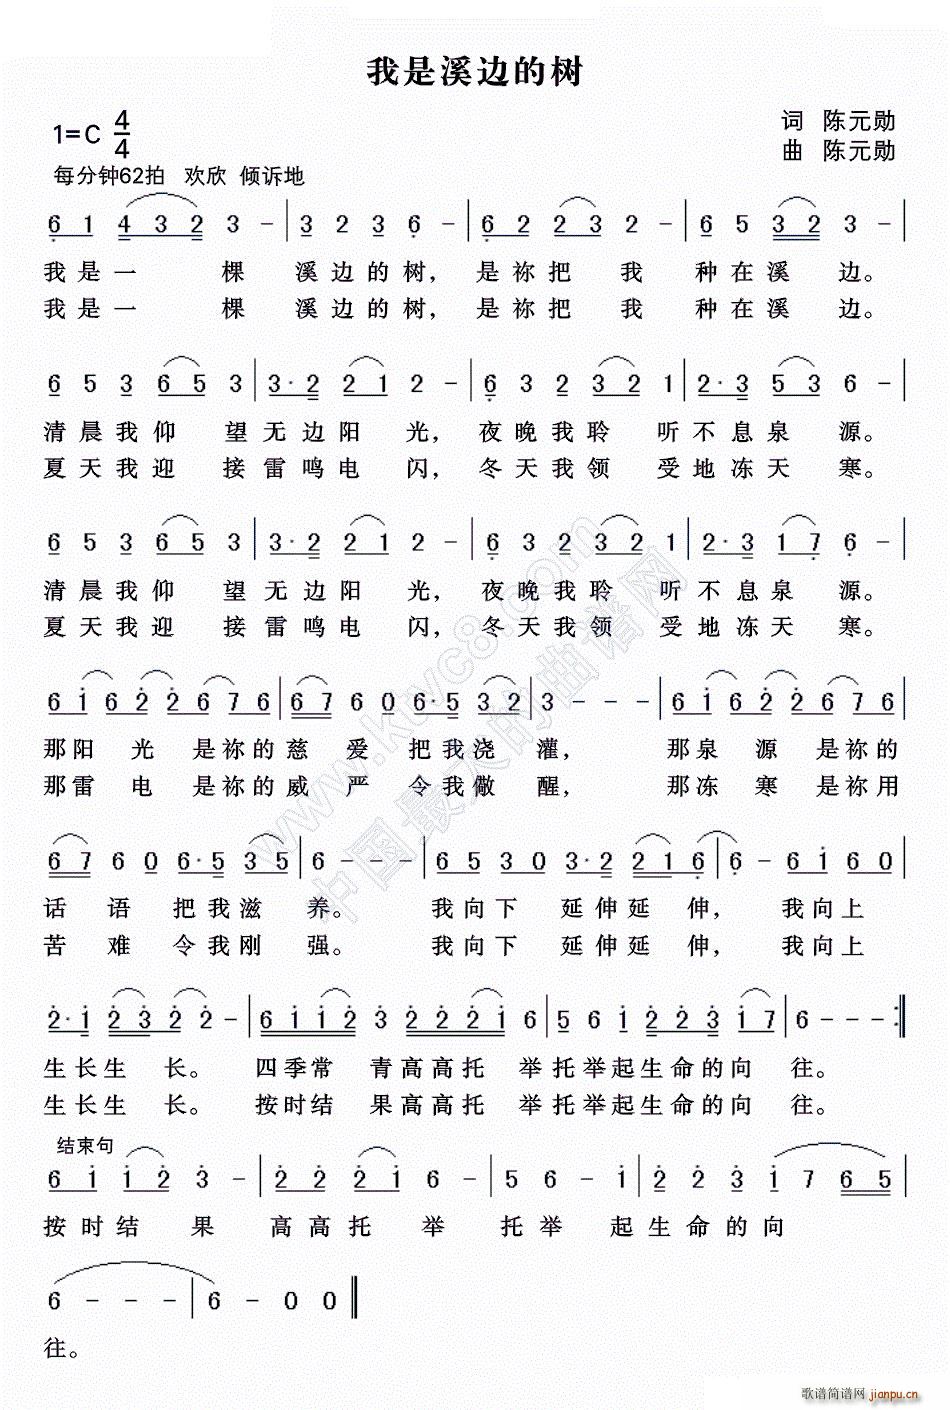 我是溪边的树
1=C 4/4
词 陈元勋
曲 陈元勋
每分钟62拍 欢欣 倾诉地
6 1 4 3 2 3 - | 3 2 3 6 - | 6 2 2 3 2 - | 6 5 3 2 3 - |
我是一 棵 溪边的树，是祢把 我 种在溪 边。
我是一 棵 溪边的树，是祢把 我 种在溪 边。
6 5 3 6 5 3 | 3·2 2 1 2 - | 6 3 2 3 2 1 | 2·3 5 3 6 - |
清晨我仰 望无边阳 光，夜晚我聆 听不息泉 源。
夏天我迎 接雷鸣电 闪，冬天我领 受地冻天 寒。
6 5 3 6 5 3 | 3·2 2 1 2 - | 6 3 2 3 2 1 | 2·3 1 7 6 - |
清晨我仰 望无边阳 光，夜晚我聆 听不息泉 源。
夏天我迎 接雷鸣电 闪，冬天我领 受地冻天 寒。
6 1 6 2 2 6 7 6 | 6 7 6 0 6·5 3 2 | 3 - - - | 6 1 6 2 2 6 7 6 |
那阳 光 是祢的慈 爱 把我浇 灌， 那泉 源 是祢的
那雷 电 是祢的威 严 令我儆 醒， 那冻 寒 是祢用
6 7 6 0 6·5 3 5 | 6 - - - | 6 5 3 0 3·2 2 1 6 | 6 - 6 1 6 0 |
话 语 把我滋 养。 我向下 延伸延 伸， 我向上
苦 难 令我刚 强。 我向下 延伸延 伸， 我向上
2·1 2 3 2 2 - | 6 1 1 2 3 2 2 2 1 6 | 5 6 1 2 2 3 1 7 | 6 - - - :‖
生长生 长。 四季常 青高高托 举托举起生命的向 往。
生长生 长。 按时结 果高高托 举托举起生命的向 往。
结束句
6 1 1 2 3 - | 2 2 2 1 6 - | 5 6 1 - | 2 2 3 1 7 6 5 |
按时结 果 高高托 举 托举 起生命的向
6 - - - | 6 - 0 0 ‖
往。
www.ktvc8.com
中国最大的曲谱网
歌谱简谱网 jianpu.cn